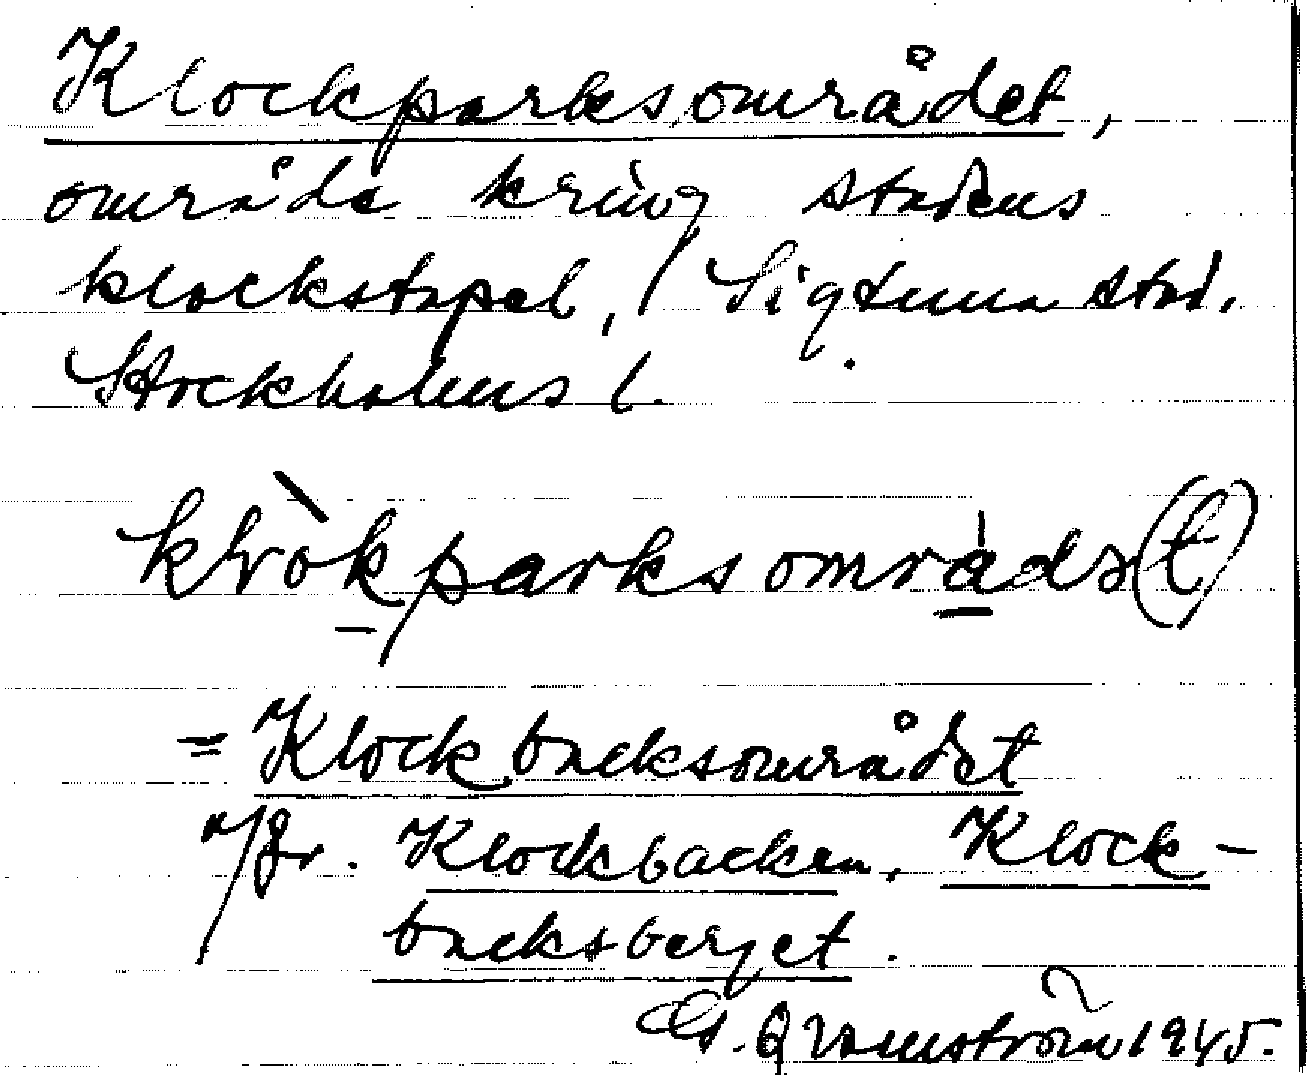 Klockparksområdet,
område kring stadens
klockstapel, / Sigtuna stad.
Stockholms l.
klòkparksområdə(t)
= Klockbacksområdet
Jfr. Klockbacken, Klock-
backsberget.
1945.